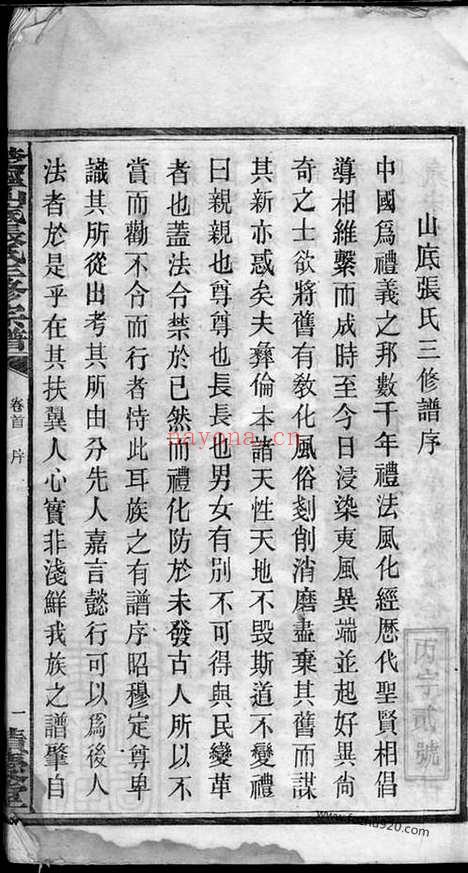 山底張氏三修譜序
中國爲禮義之邦數千年禮法風化經歷代聖賢相倡
導相維繫而成時至今日浸染東風異端並起好異尚
奇之士欲將舊有教化風俗刻削消磨盡棄其舊而謀
其新亦惑矣夫彝倫本諸天性天地不毀斯道不變禮
曰親親也尊尊也長長也男女有別不可得與民變革
者也蓋法令禁於已然而禮化防於未發古人所以不
賞而勸不令而行者恃此耳族之有譜序昭穆定尊卑
識其所從出考其所由分先人嘉言懿行可以爲後人
法者於是乎在其扶翼人心實非淺鮮我族之譜肇自
張氏三修宗譜
卷首 序
一
丙字貳號
nayona.cn
www.fozhu920.com